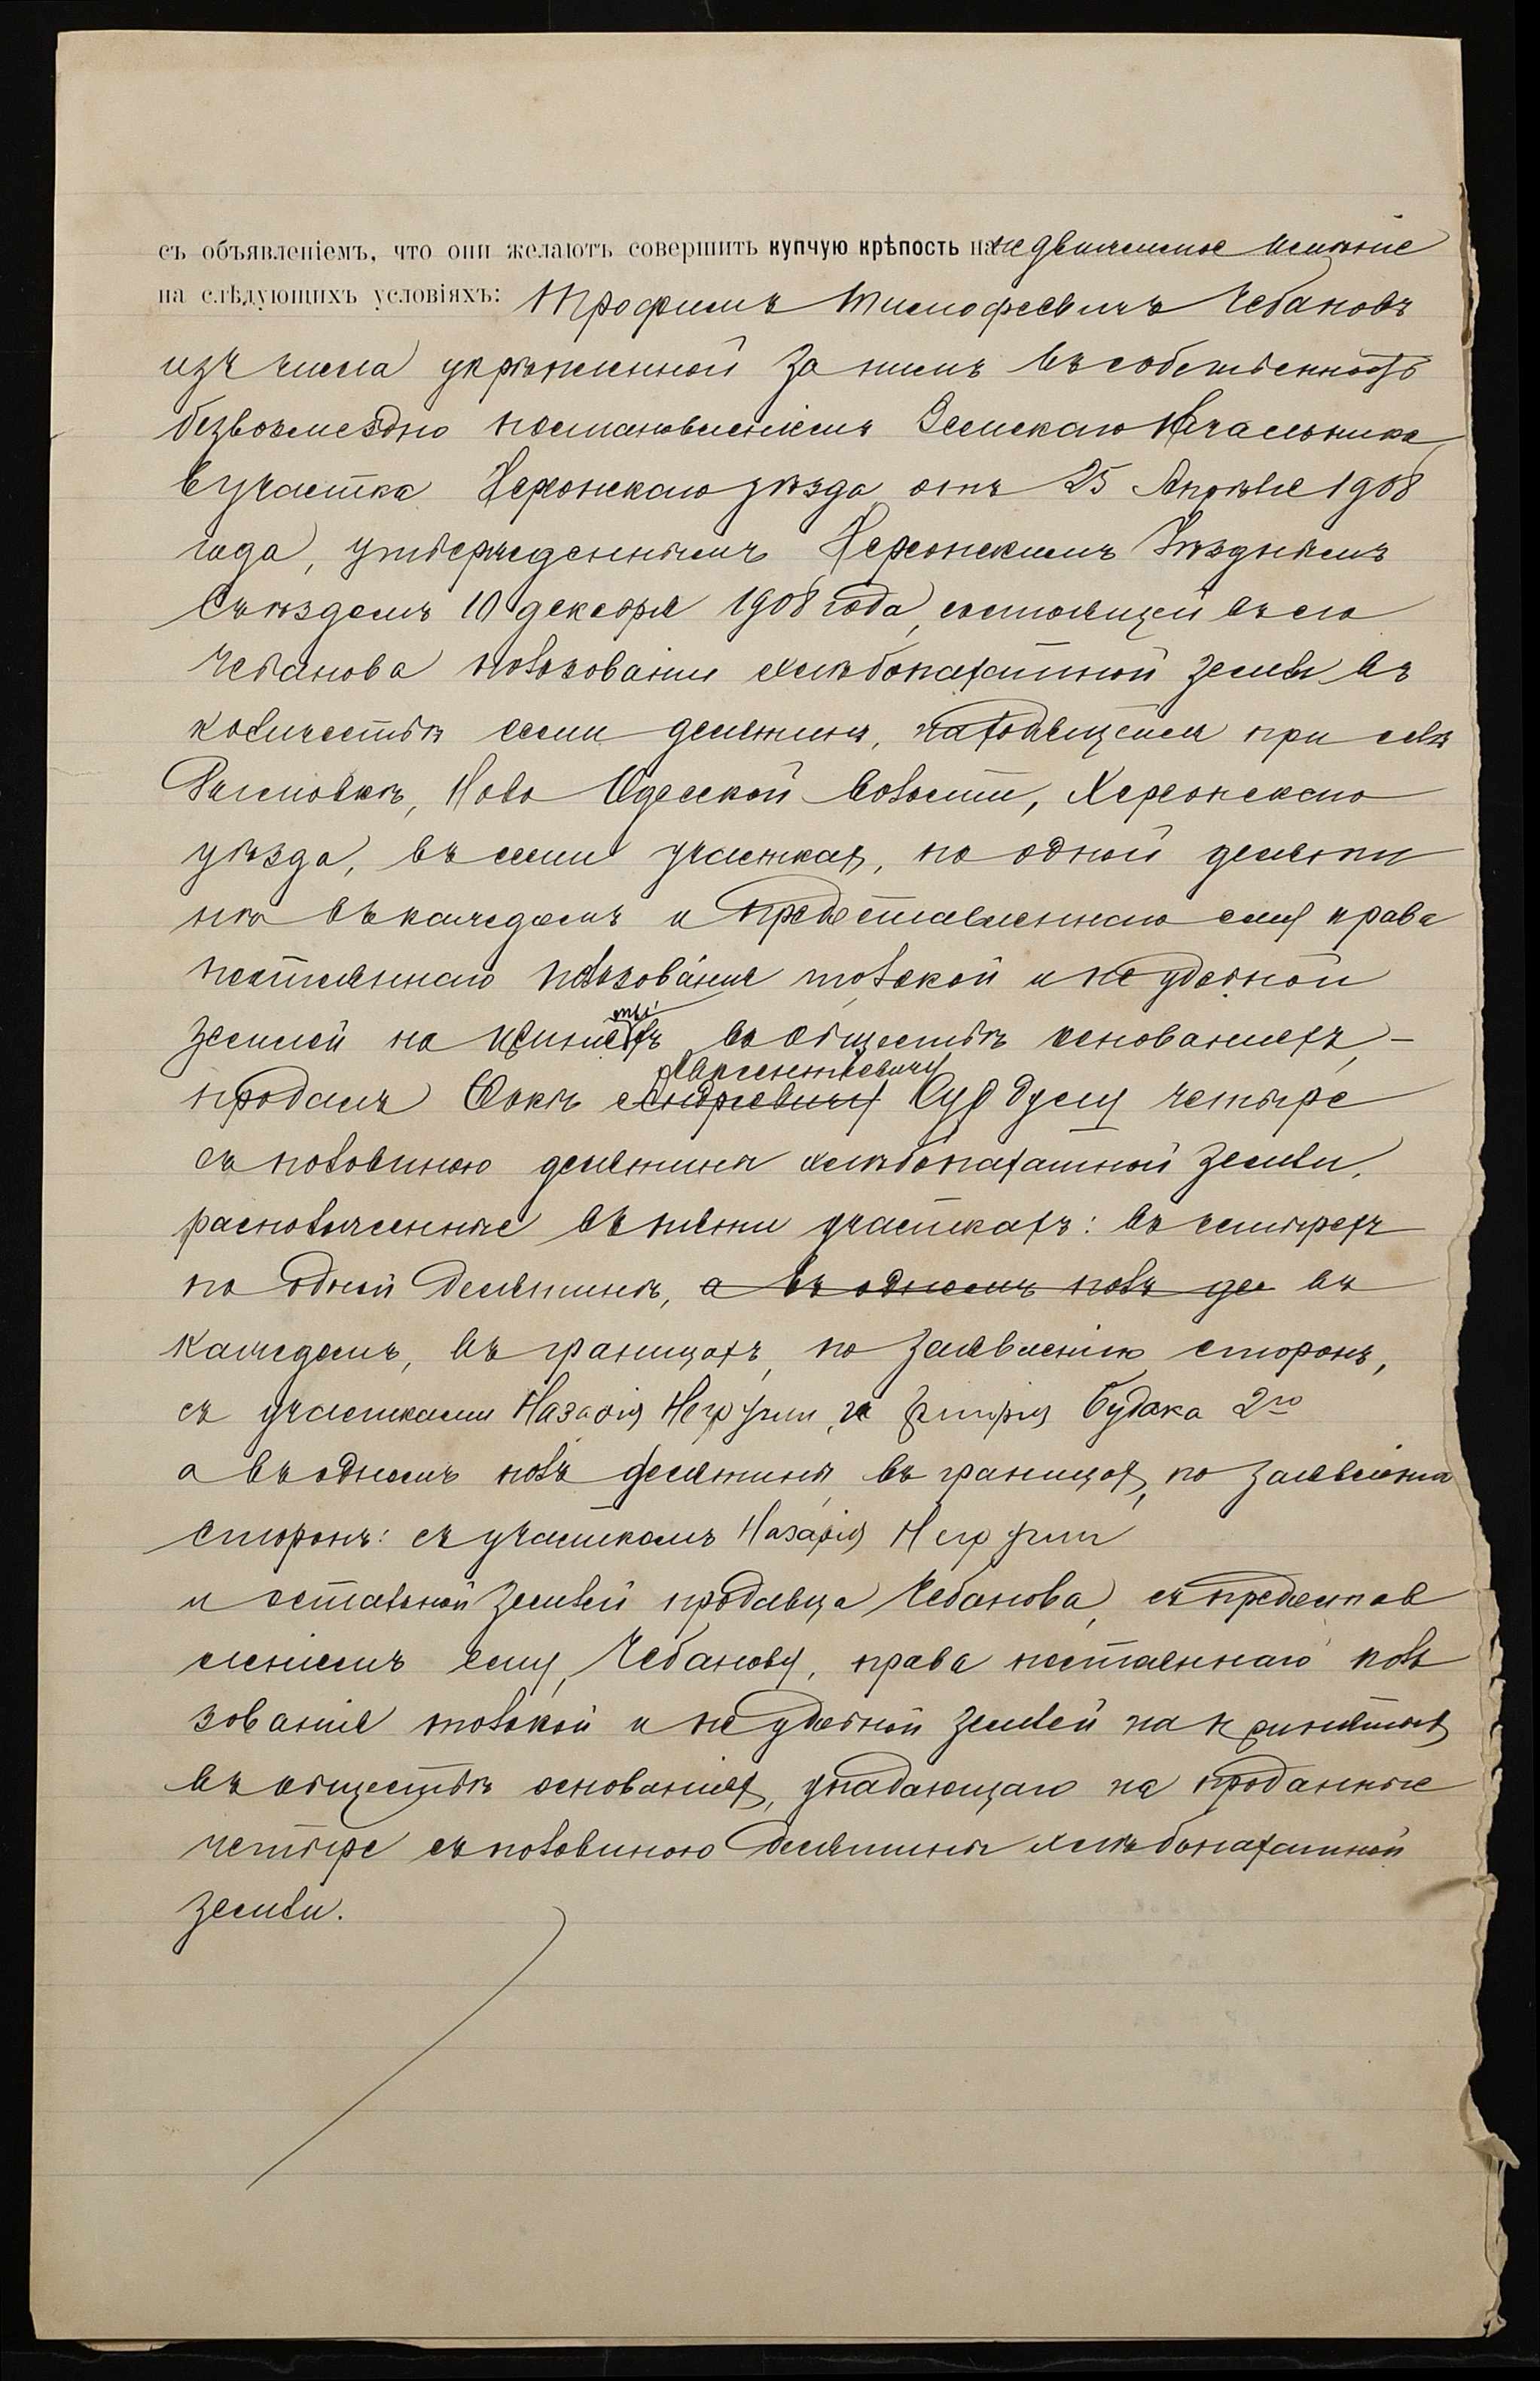 съ объявленіемъ, что они желаютъ совершить купчую крѣпость на недвижимое имѣніе
на слѣдующихъ условіяхъ: Трофимъ Тимофеевичъ Чебановъ
изъ числа укрѣпленной за нимъ въ собственность
безвозмездно постановленіемъ Земскаго Начальника
6 участка Херсонскаго уѣзда отъ 25 Апрѣля 1908
года, утвержденнымъ Херсонскимъ Уѣзднымъ
Съѣздомъ 10 декабря 1908 года, состоящей въ его
Чебанова пользованіи хлѣбопахатной земли въ
количествѣ семи десятинъ, находящейся при селѣ
Ново Одесской волости, Херсонскаго
уѣзда, въ семи участкахъ, по одной десяти
нѣ въ каждомъ и предоставленнаго ему права
постояннаго пользованія толокой и неудобной
землей на принятыхъ въ обществѣ основаніяхъ, –
продалъ Фокѣ Авксентьевичу Андреевичу четыре
съ половиною десятины хлѣбопахатной земли,
расположенные въ пяти участкахъ: въ четырехъ
по одной десятинѣ, а въ одномъ полъ де въ
каждомъ, въ границахъ, по заявленію сторонъ,
съ участками Назарія и Будака 2го
а въ одномъ полъ десятины въ границахъ, по заявленію
сторонъ: съ участкомъ Назарія
и остальной землей продавца Чебанова, съ предостав
леніемъ ему, Чебанову, права постояннаго поль
зованія толокой и неудобной землей на принятыхъ
въ обществѣ основаніяхъ, упадающаго на проданные
четыре съ половиною десятины хлѣбопахатной
земли.